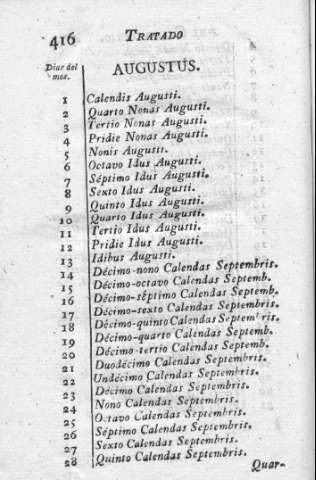 416 TRATADO
Dias del
mes. AUGUSTUS.
1 Calendis Augusti.
2 Quarto Nonas Augusti.
3 Tertio Nonas Augusti.
4 Pridie Nonas Augusti.
5 Nonis Augusti.
6 Octavo Idus Augusti.
7 Séptimo Idus Augusti.
8 Sexto Idus Augusti.
9 Quinto Idus Augusti.
10 Quarto Idus Augusti.
11 Tertio Idus Augusti.
12 Pridie Idus Augusti.
13 Idibus Augusti.
14 Décimo-nono Calendas Septembris.
15 Décimo-octavo Calendas Septemb.
16 Décimo-séptimo Calendas Septemb.
17 Décimo-sexto Calendas Septembris.
18 Décimo-quinto Calendas Septembris.
19 Décimo-quarto Calendas Septemb.
20 Décimo-tertio Calendas Septemb.
21 Duodécimo Calendas Septembris.
22 Undécimo Calendas Septembris.
23 Décimo Calendas Septembris.
24 Nono Calendas Septembris.
25 Octavo Calendas Septembris.
26 Séptimo Calendas Septembris.
27 Sexto Calendas Septembris.
28 Quinto Calendas Septembris.
Quar-